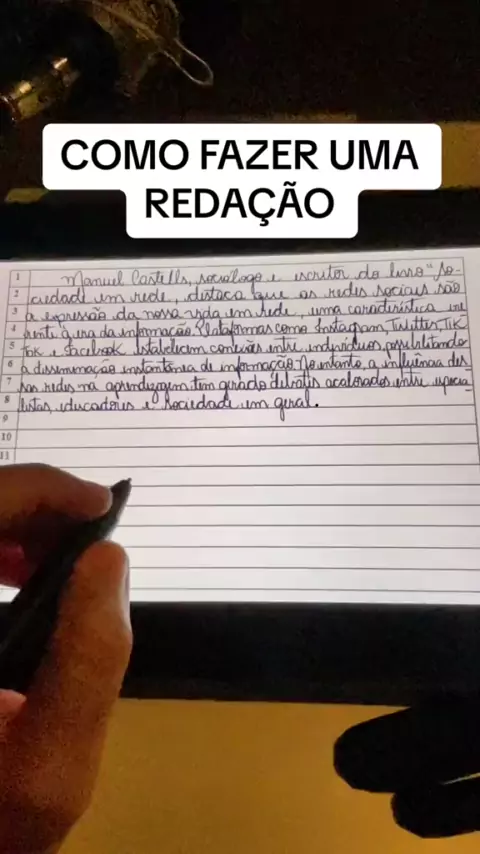 COMO FAZER UMA
REDAÇÃO
1 Manuel Castells, sociólogo e escritor do livro "So-
2 ciedade em rede, destaca que as redes sociais são
3 a expressão da nossa vida em rede, uma característica ine
4 rente à era da informação. Plataformas como Instagram, Twitter, Tik
5 Tok e Facebook estabelecem conexões entre indivíduos, possibilitando
6 a disseminação instantânea de informação. No entanto, a influência des-
7 sas redes na aprendizagem tem girado debates acalorados entre especia-
8 listas, educadores e sociedade em geral.
9
10
11